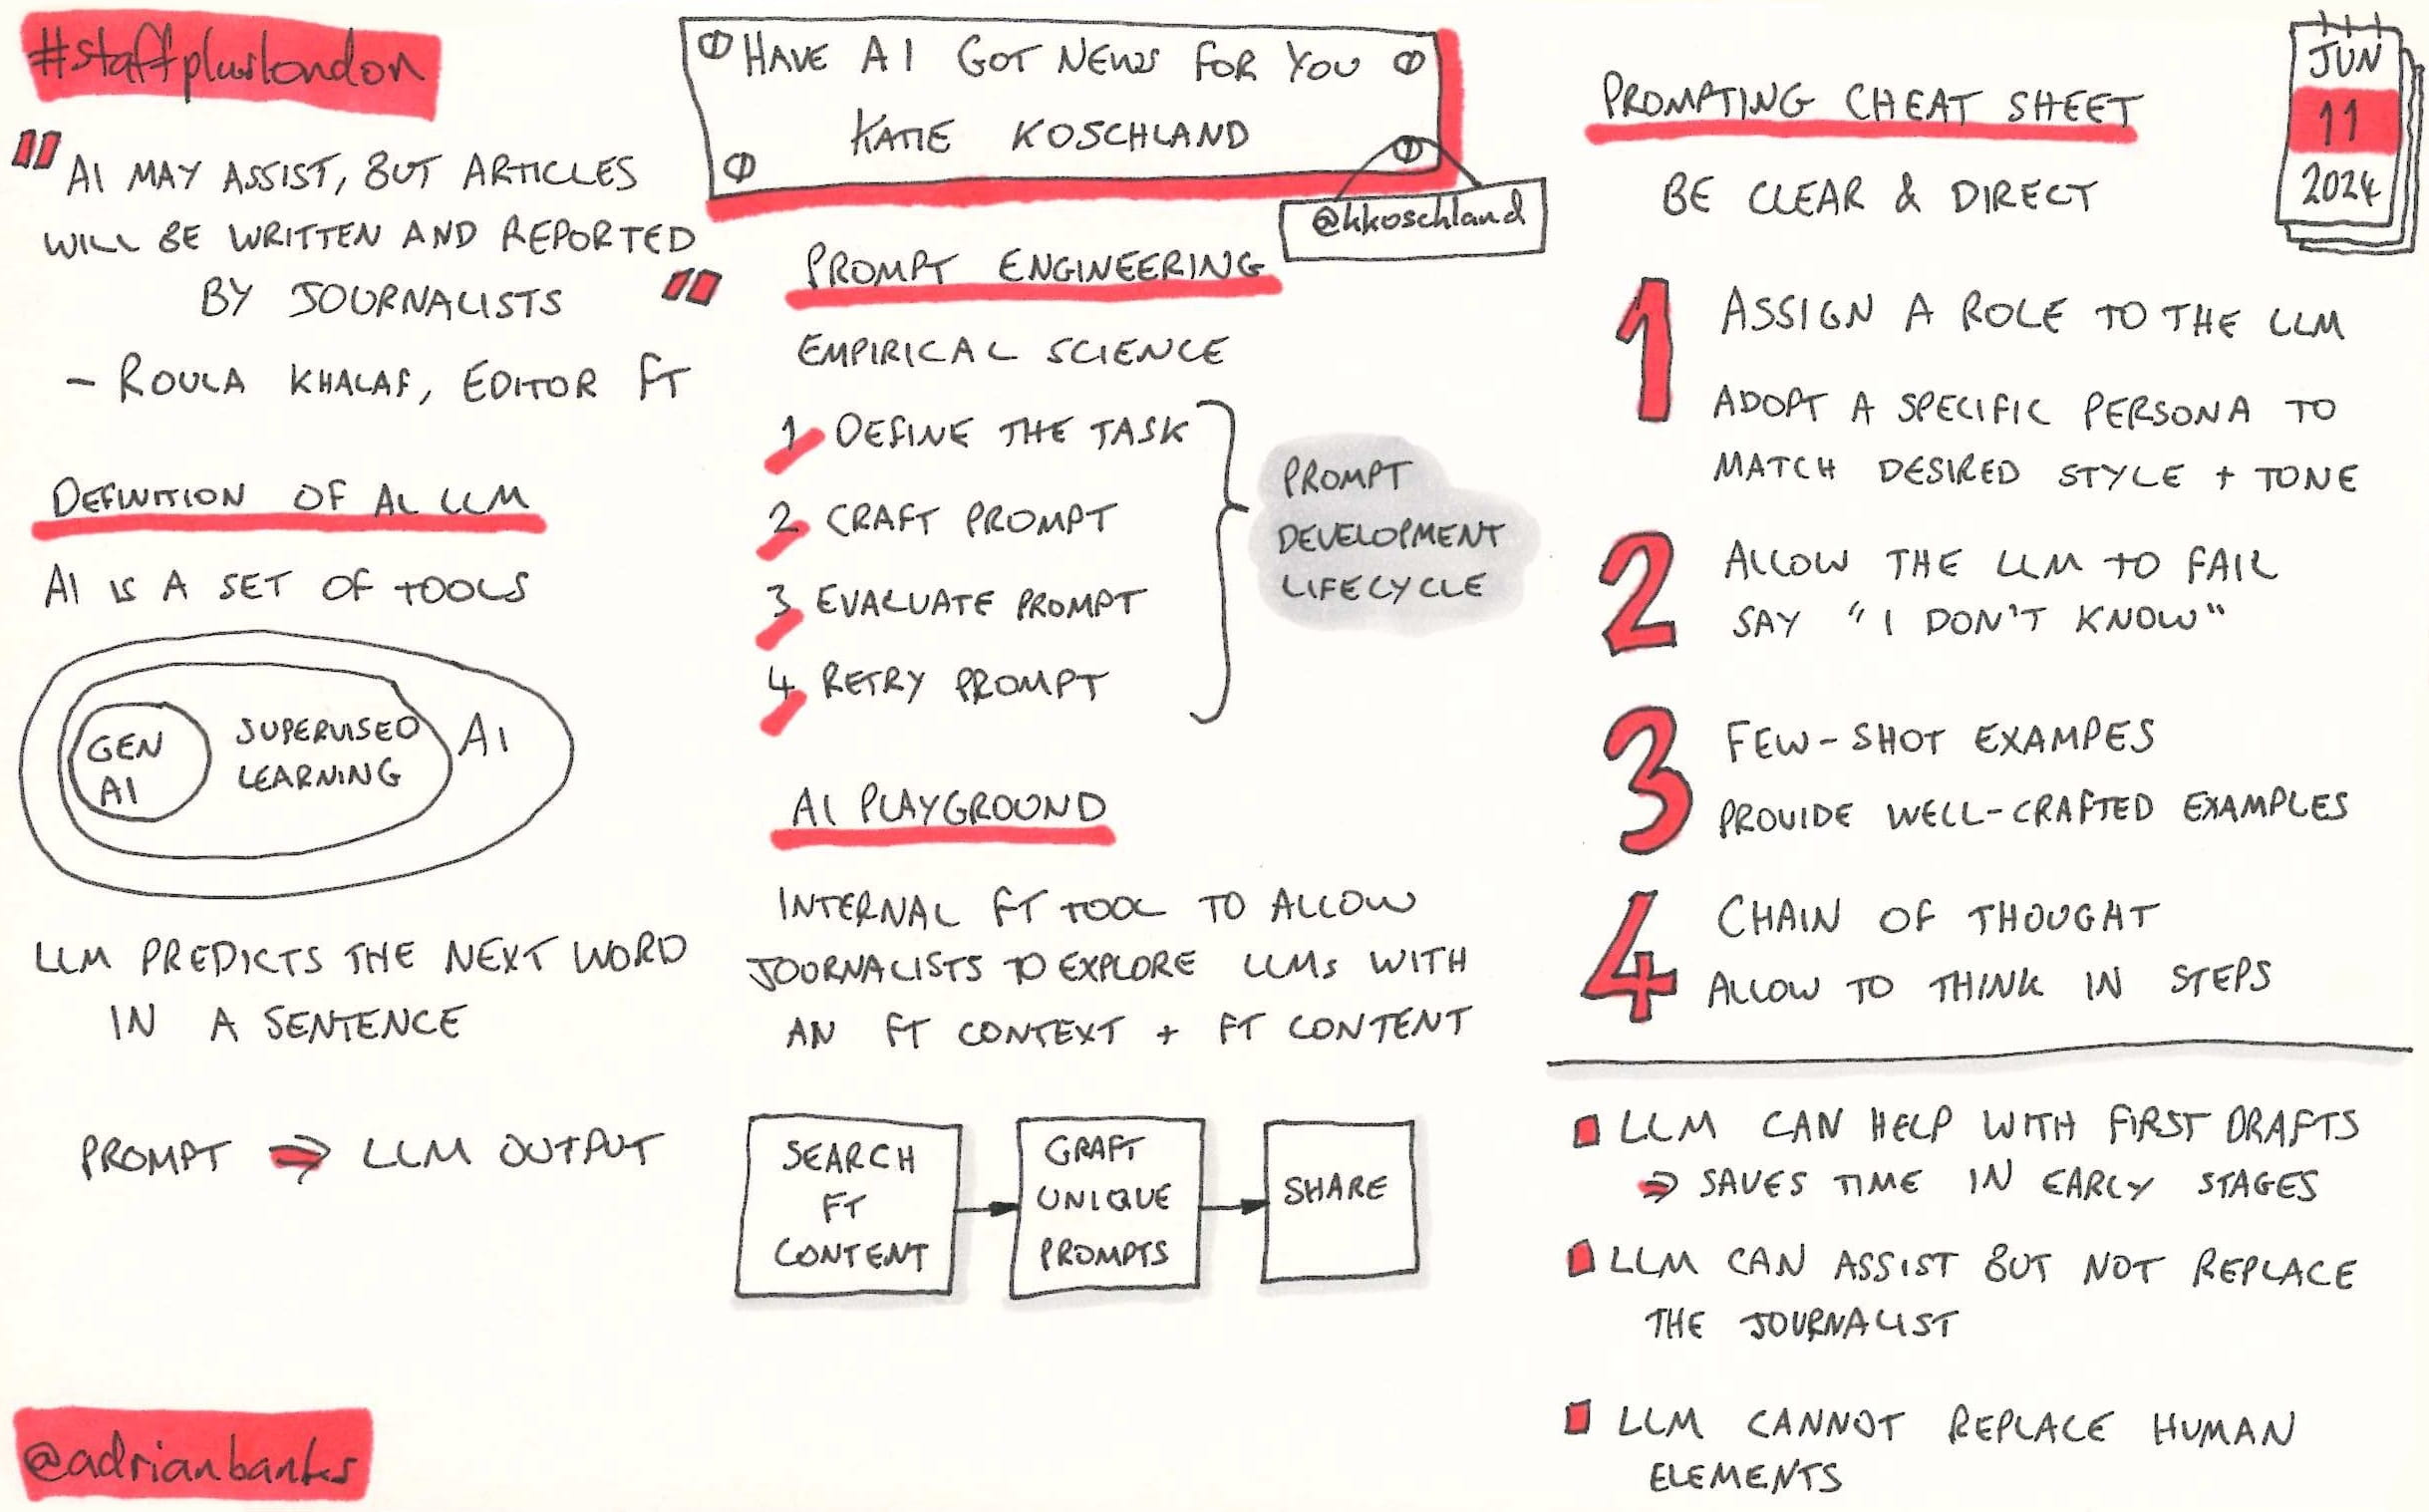 #staffpluslondon
"AI MAY ASSIST, BUT ARTICLES
WILL BE WRITTEN AND REPORTED
BY JOURNALISTS"
- ROULA KHALAF, EDITOR FT
DEFINITION OF AL LLM
AI IS A SET OF TOOLS
GEN
AI
SUPERVISED
LEARNING
AI
LLM PREDICTS THE NEXT WORD
IN A SENTENCE
PROMPT ⇒ LLM OUTPUT
@adrianbanks
HAVE AI GOT NEWS FOR YOU
KATIE KOSCHLAND
@kkoschland
PROMPT ENGINEERING
EMPIRICAL SCIENCE
1 DEFINE THE TASK
2 CRAFT PROMPT
3 EVALUATE PROMPT
4 RETRY PROMPT
PROMPT
DEVELOPMENT
LIFECYCLE
AI PLAYGROUND
INTERNAL FT TOOL TO ALLOW
JOURNALISTS TO EXPLORE LLMs WITH
AN FT CONTEXT + FT CONTENT
SEARCH
FT
CONTENT
GRAFT
UNIQUE
PROMPTS
SHARE
JUN
11
2024
PROMPTING CHEAT SHEET
BE CLEAR & DIRECT
1 ASSIGN A ROLE TO THE LLM
ADOPT A SPECIFIC PERSONA TO
MATCH DESIRED STYLE + TONE
2 ALLOW THE LLM TO FAIL
SAY "I DON'T KNOW"
3 FEW-SHOT EXAMPES
PROVIDE WELL-CRAFTED EXAMPLES
4 CHAIN OF THOUGHT
ALLOW TO THINK IN STEPS
LLM CAN HELP WITH FIRST DRAFTS
⇒ SAVES TIME IN EARLY STAGES
LLM CAN ASSIST BUT NOT REPLACE
THE JOURNALIST
LLM CANNOT REPLACE HUMAN
ELEMENTS